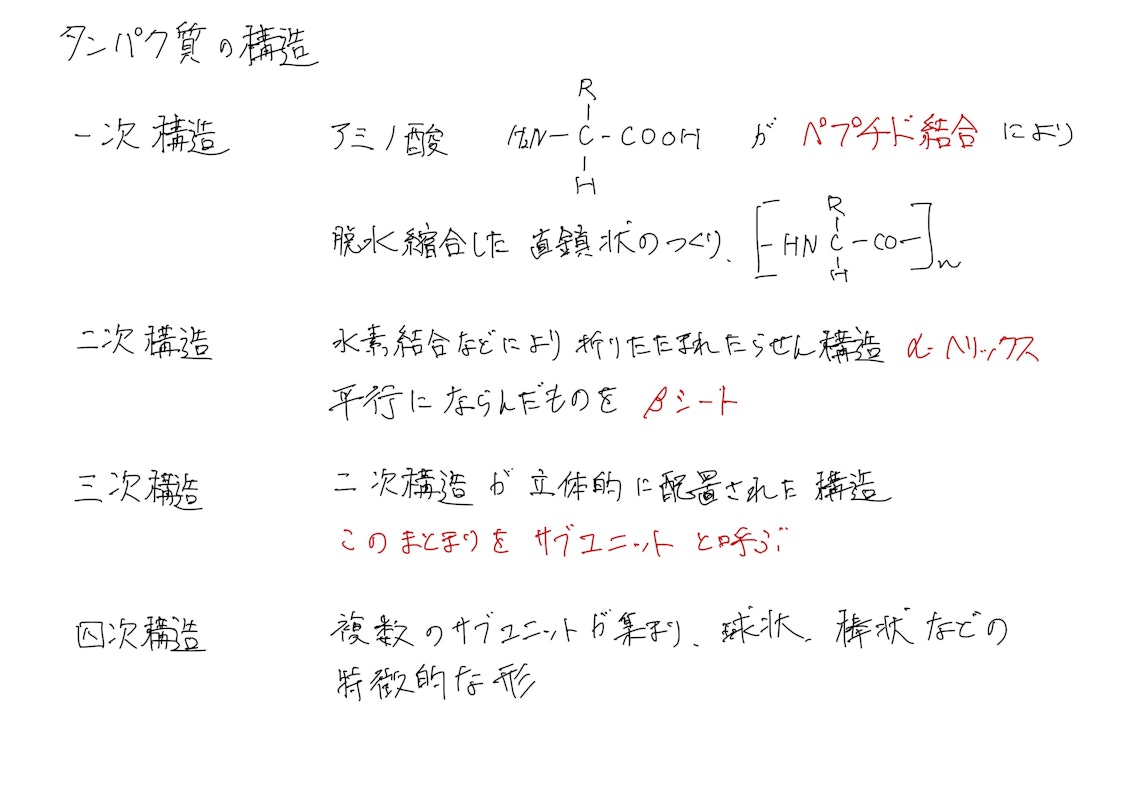 タンパク質の構造
R
一次構造 アミノ酸 H₂N－C－COOH が ペプチド結合 により
H
R
脱水縮合した 直鎖状のつくり、 [－HN C－CO－]n
H
二次構造 水素結合などにより折りたたまれたらせん構造 α-ヘリックス
平行にならんだものを βシート
三次構造 二次構造が立体的に配置された構造
このまとまりを サブユニット と呼ぶ
四次構造 複数のサブユニットが集まり、球状、棒状などの
特徴的な形